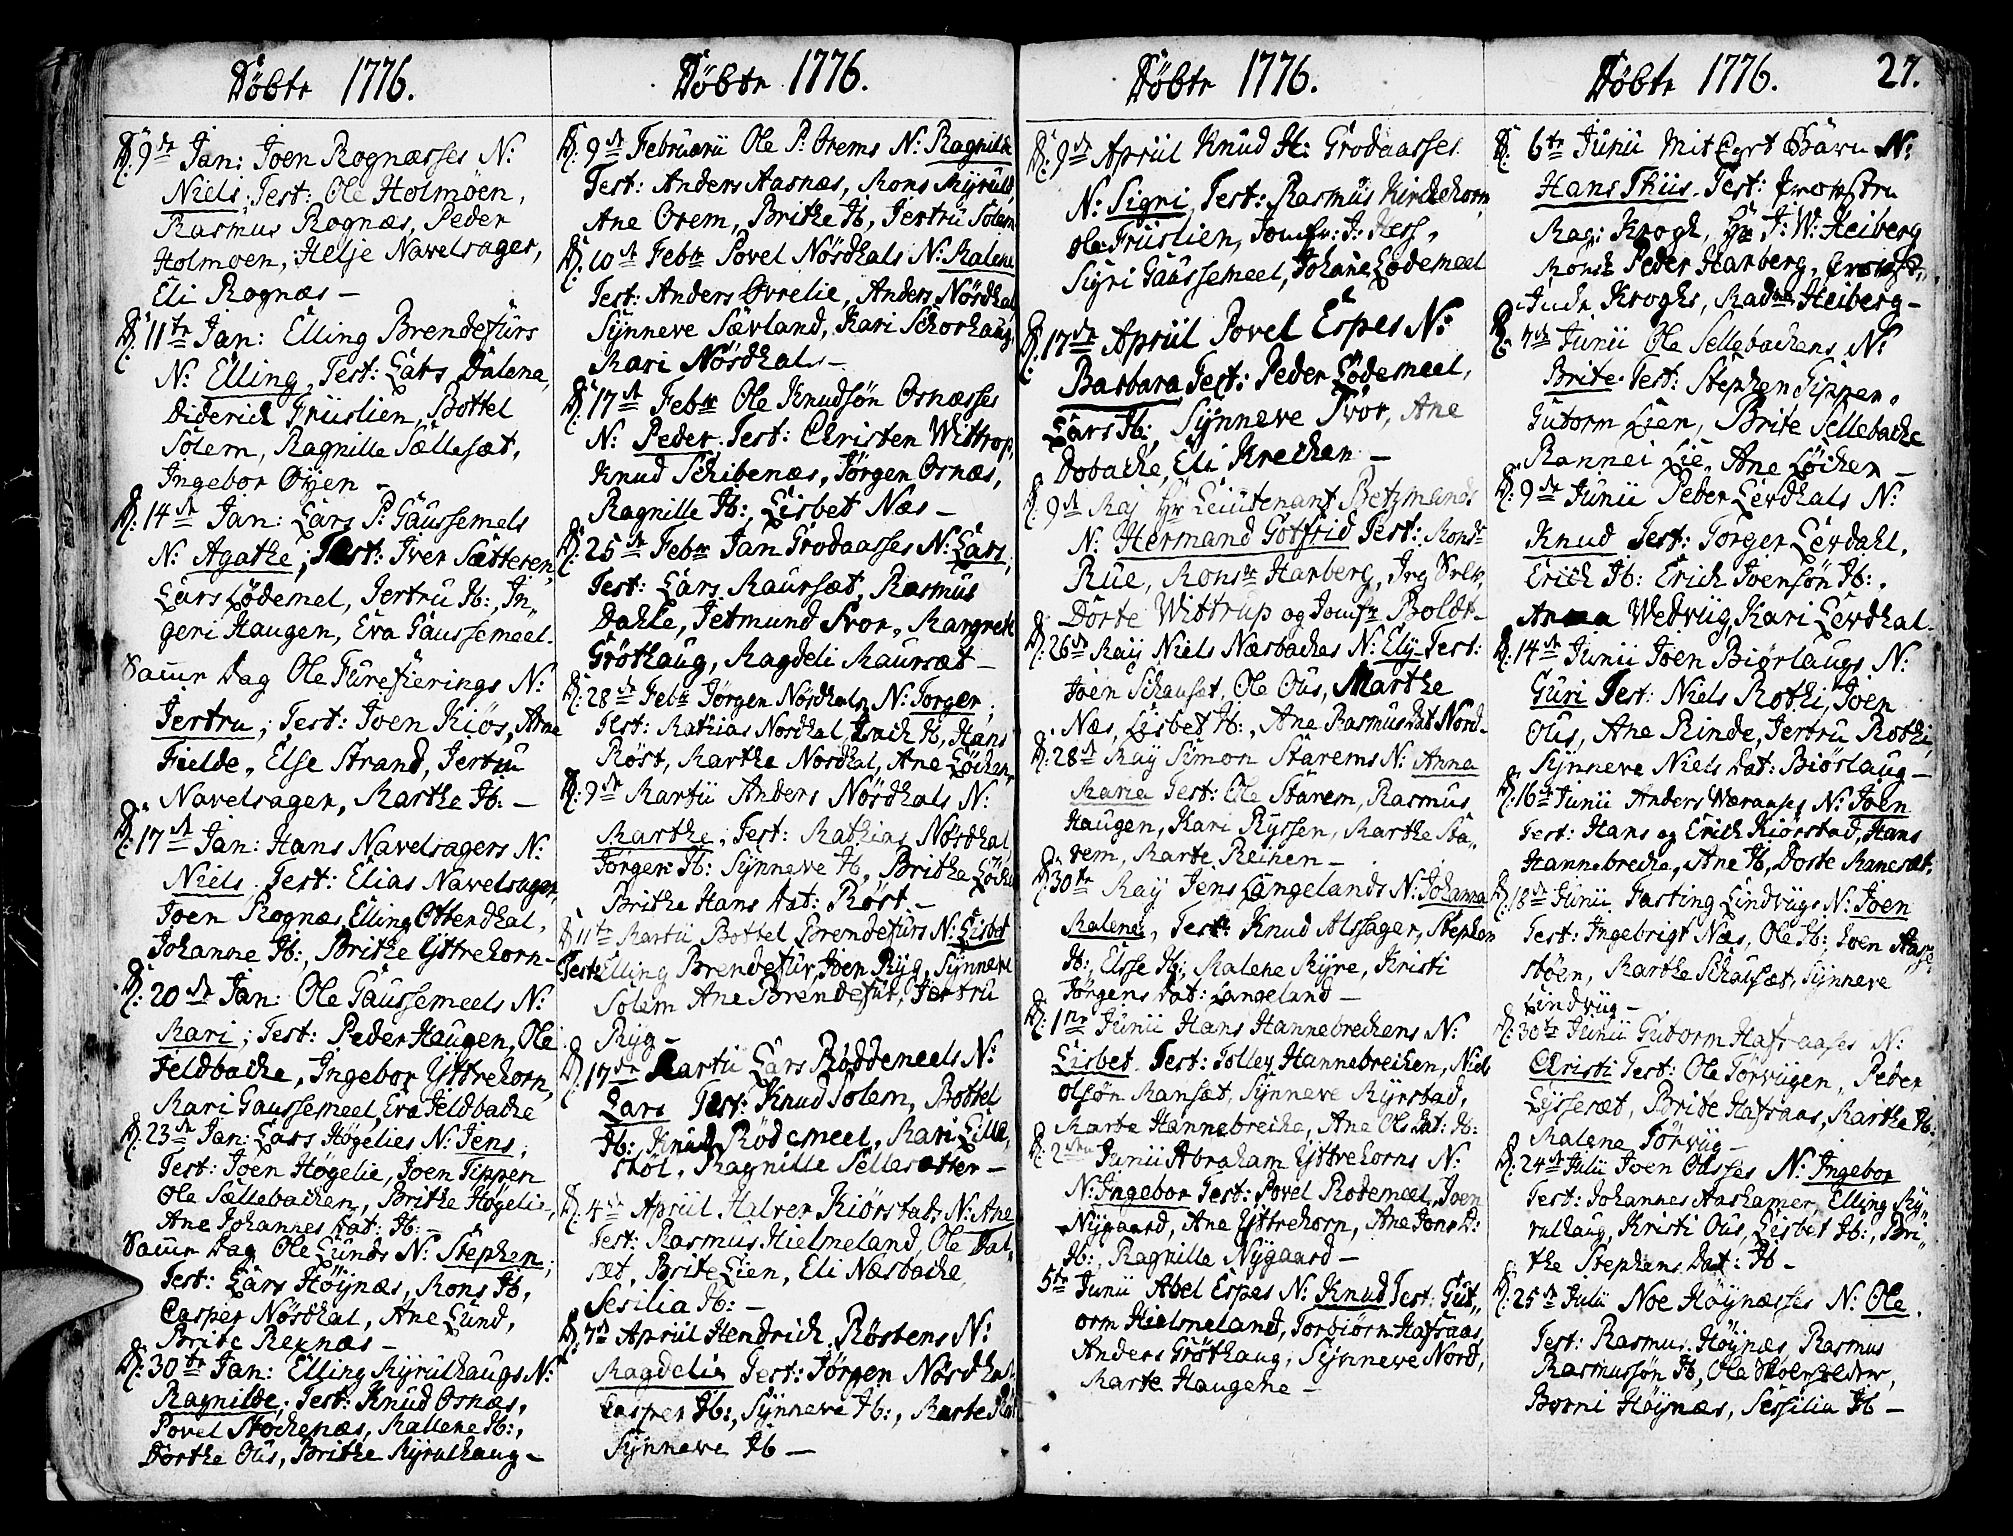 Döbte 1776.
D: 9de Jan: Joen Rognæsses N:
Niels, Test: Ole Holmöen,
Rasmus Rognæs, Peder
Holmoen, Helje Navelsager,
Eli Rognæs –
D: 11te Jan: Elling Brendefurs
N: Elling, Test: Lars Dalene,
Diderich Friislien, Bottel
Solem, Ragnille Sællesæt,
Ingebor Öyen –
D: 14de Jan: Lars P: Gaussemels
N: Agathe; Test: Iver Sætteren,
Lars Lödemel, Jertru Ib:, In„
geri Haugen, Eva Gaussemeel.
Samme Dag Ole Furefierings N:
Jertru; Test: Joen Kiös, Anne
Fielde, Else Strand, Jertru
Navelsager, Marthe Ib: –
D: 17de Jan: Hans Navelsagers N:
Niels. Test: Elias Navelsager,
Joen Rognæs, Elling Ottendhal,
Johanne Ib:, Brithe Yttrehorn–
D: 20de Jan: Ole Gaussemeels N:
Mari; Test: Peder Haugen, Ole
Feldbache, Ingebor Yttrehorn,
Mari Gaussemeel, Eva Feldbache
D: 23de Jan: Lars Högelies N: Jens;
Test: Joen Högelie, Joen Tippen
Ole Sællebachen, Brithe Högelie,
Ane Johannes Dat: Ib: –
Samme Dag Ole Lunds N: Stephen;
Test: Lars Höynæs, Mons Ib,
Casper Nördhal, Ane Lund,
Brite Rexnæs –
D: 30te Jan: Elling Myrulhaugs N:
Ragnilde, Test: Knud Osnæs,
Povel Stöchenæs, Mallene Ib:,
Dorthe Ous, Brithe Myrulhaug –
Döbte 1776.
D: 9de Februarii Ole P: Orems N: Ragnild
Test: Anders Aasnæs, Mons Myrull,
Ane Orem, Brithe Ib, Jertru Solem
D: 10de Febr Povel Nördhals N: Malene
Test: Anders Övrelie, Anders Nördhal
Synneve Sævland, Kari Schorhaug,
Mari Nördhal –
D: 17de Febr Ole Knudsön Osnæsses
N: Peder. Test: Christen Wittrop,
Knud Schibenæs, Jörgen Osnæs,
Ragnille Ib:, Lisbet Næs –
D: 25de Febr Jan Grodaasses N: Lars,
Test: Lars Maursæt, Rasmus
Dahle, Jetmund Svor, Margrete
Gröthaug, Magdeli Maursæt –
D: 28de Febr Jörgen Nördhals N: Jörgen,
Test: Mathias Nordhal, Isach Ib, Hans
Röst, Marthe Nordhal, Ane Löchen,
D: 9de Martii Anders Nördhals N:
Marthe, Test: Mathias Nördhal,
Jörgen Ib: Synneve Ib, Brithe Löchen
Brithe Hans Dat: Röst. –
D 11te Martii Bottel Brendefurs N: Lisbet
Test: Elling Brendefur, Joen Ryg, Synneve
Solem Ane Brendefur, Jertru
Ryg –
D: 17de Martii Lars Röddemeels N:
Lars Test: Knud Solem, Bottel
Ib:, Knud Rödemeel, Mari Lille„
stöl, Ragnille Sellesætter –
D: 4de Apriil Halver Kiörstads N: Ane
Test: Rasmus Hielmeland, Ole Dal„
sæt, Brite Lien, Eli Næsbache,
Sesilia Ib: –
D: 7de Apriil Hendrich Röstens N:
Magdelis Test: Jörgen Nördhal,
Casper Ib:, Synneve Ib:, Marte Röst
Synneve Ib –
Döbte 1776.
D: 9de Apriil Knud H: Grodaasses
N: Sigri, Test: Rasmus Kirchehorn,
Ole Friislien, Jomfr: J: Hess,
Syri Gaussemeel, Johane Lödemeel
D: 17de Apriil Povel Espes N:
Barbara Test: Peder Lödemeel,
Lars Ib:, Synneve Svor, Ane
Dobache, Eli Krechen –
D: 9de Maj Hr Leiutenant Betzmands
N: Hermand Gotfrid Test: Monsr
Rue, Monsr Harberg,
Dorte Wittrup og Jomfr Boldt –
D: 26de Maij Niels Næsbaches N: Ely Test:
Joen Schauset, Ole Ous, Marthe
Næs, Lisbet Ib:, Ane Rasmus Dat Nord–
D: 28de Maij Simon Starems N: Anna
Maria Test: Ole Starem, Rasmus
Haugen, Kari Myssen, Marthe Sta„
rem, Marte Reinen –
D: 30te Maij Jens Langelands N: Johanna
Malene, Test: Knud Alssager, Stephen
Ib:, Elsse Ib:, Malene Myre, Kristi
Jörgens Dat: Langeland –
D: 1ste Junii Hans Hannebrechens N:
Lisbet. Test: Tolley Hannebrechen, Niels
Olsön Mansæt, Synneve Myrstad,
Marte Hannebreche, Ane Ols Dat: Ib:
D: 2den Junii Abraham Yttrehorns N:
N: Ingebor Test: Povel Rodemeel, Joen
Nygaard, Ane Yttrehorn, Ane Jons D:
Ib:, Ragnille Nygaard –
5te Junii Abel Espes N: Knud Test: Gut„
orm Hielmeland, Torbiörn Hafsaas,
Anders Gröthaug, Synneve Nord,
Marte Haugene –
Döbte 1776. 27.
D: 6te Junii Mit eget Barn N:
Hans Thiis. Test:
Mag: Krogh, Hr J: W: Heiberg
Monsr Peder Harberg,
Kroghs, Mad Heiberg –
D: 7de Junii Ole Sellebachens N:
Brite. Test: Stephen Tippen,
Gutorm Lien, Brite Sellebache
Rannei Lie, Ane Löchen –
D: 9de Junii Peder Levdhals N:
Knud Test: Torger Levdahl,
Erich Ib: Erich Joensön Ib:,
Anna Wedvug, Kari Levdhal–
D: 14de Junii Joen Biörlaugs N:
Guri Test: Niels Rothi, Joen
Ous, Ane Rinde, Jertru Rothi,
Synneve Niels Dat: Biörlaug –
D: 16de Junii Anders Weraases N: Joen
Test: Hans og Erich Kiörstad, Hans
Hannebreche, Ane Ib, Dorte Manesæt.
D: 18de Junii Fasting Lindvigs N: Joen
Test: Ingebrigt Næs, Ole Ib:, Joen Aasse„
stöen, Marthe Schausæt, Synneve
Lindvug –
D: 30te Junii Gutorm Hafsaases N:
Christi Test: Ole Törvugen, Peder
Lysseræt, Brite Hafsaas, Marthe Ib:
Malene Törvug –
D: 24de Julii Joen Ousses N: Ingebor
Test: Johannes Aashamer, Elling My„
rulhaug, Kristi Ous, Lisbet Ib:, Bri„
the Stephens Dat: Ib –
D: 25de Julii Noe Höynæsses N: Ole.
Test: Rasmus Höynæs, Rasmus
Rasmussön Ib, Ole
Borni Höynæs, Sessilia Ib –